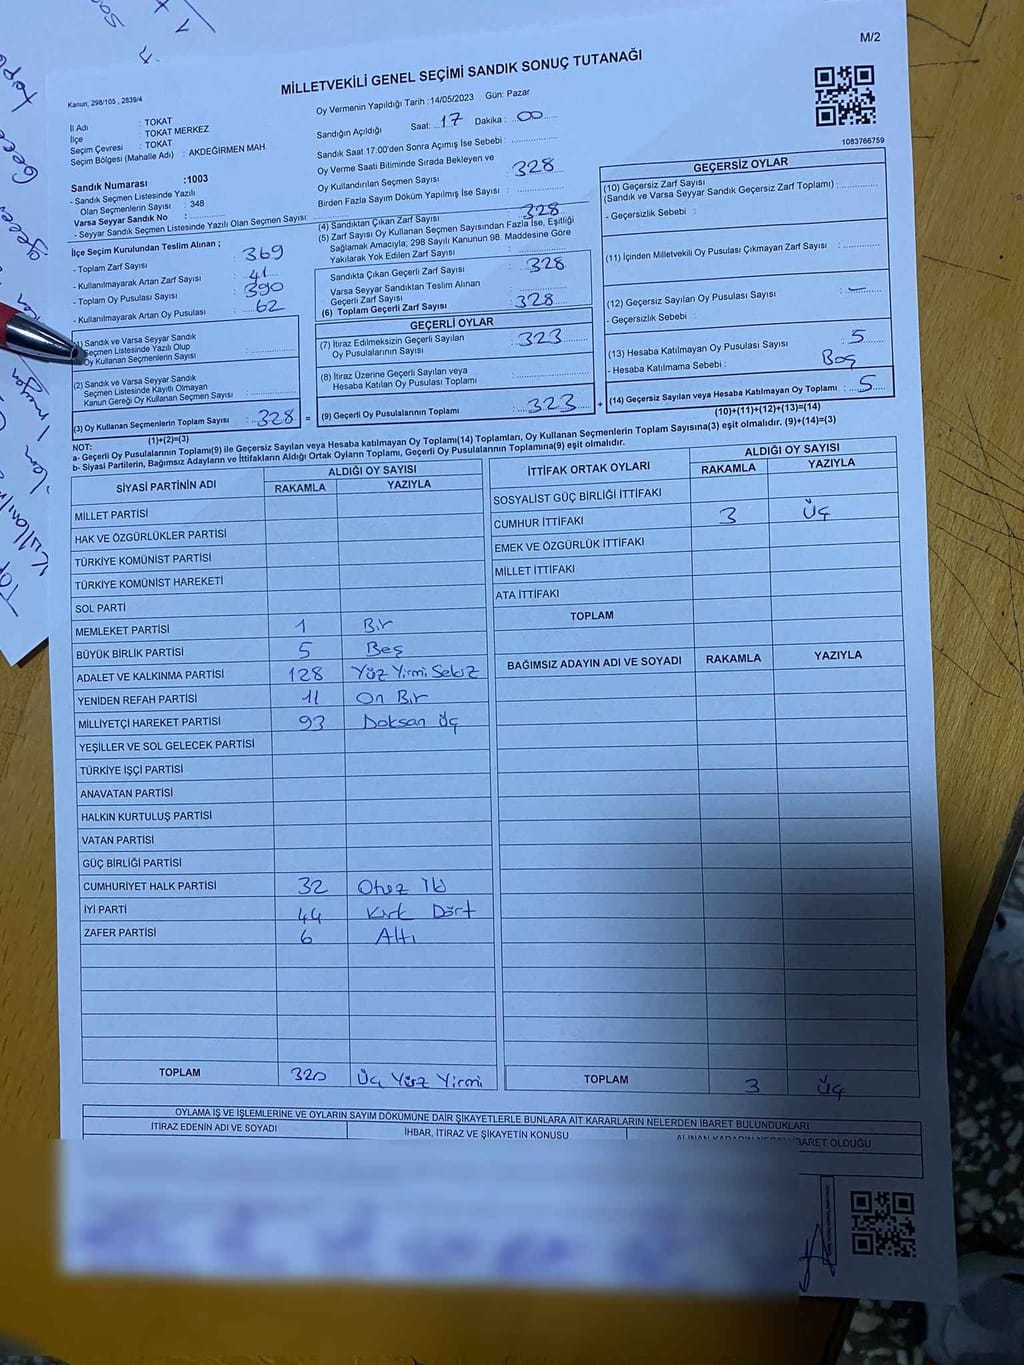 M/2
MİLLETVEKİLİ GENEL SEÇİMİ SANDIK SONUÇ TUTANAĞI
Kanun, 298/105 , 2839/4
İl Adı : TOKAT
İlçe : TOKAT MERKEZ
Seçim Çevresi : TOKAT
Seçim Bölgesi (Mahalle Adı) : AKDEĞİRMEN MAH.
Sandık Numarası :1003
- Sandık Seçmen Listesinde Yazılı
Olan Seçmenlerin Sayısı : 348
Varsa Seyyar Sandık No :
- Seyyar Sandık Seçmen Listesinde Yazılı Olan Seçmen Sayısı:
Oy Vermenin Yapıldığı Tarih :14/05/2023 Gün: Pazar
Sandığın Açıldığı Saat: 17 Dakika : 00
Sandık Saat 17:00'den Sonra Açımış İse Sebebi :
Oy Verme Saati Bitiminde Sırada Bekleyen ve
Oy Kullandırılan Seçmen Sayısı : 328
Birden Fazla Sayım Döküm Yapılmış İse Sayısı :
1083766759
İlçe Seçim Kurulundan Teslim Alınan ;
- Toplam Zarf Sayısı : 369
- Kullanılmayarak Artan Zarf Sayısı : 41
- Toplam Oy Pusulası Sayısı : 390
- Kullanılmayarak Artan Oy Pusulası : 62
1) Sandık ve Varsa Seyyar Sandık
Seçmen Listesinde Yazılı Olup
Oy Kullanan Seçmenlerin Sayısı :
(2) Sandık ve Varsa Seyyar Sandık
Seçmen Listesinde Kayıtlı Olmayan
Kanun Gereği Oy Kullanan Seçmen Sayısı :
(3) Oy Kullanan Seçmenlerin Toplam Sayısı : 328 =
(1)+(2)=(3)
(4) Sandıktan Çıkan Zarf Sayısı : 328
(5) Zarf Sayısı Oy Kullanan Seçmen Sayısından Fazla İse, Eşitliği
Sağlamak Amacıyla; 298 Sayılı Kanunun 98. Maddesine Göre
Yakılarak Yok Edilen Zarf Sayısı :
Sandıkta Çıkan Geçerli Zarf Sayısı : 328
Varsa Seyyar Sandıktan Teslim Alınan
Geçerli Zarf Sayısı :
(6) Toplam Geçerli Zarf Sayısı : 328
GEÇERLİ OYLAR
(7) İtiraz Edilmeksizin Geçerli Sayılan
Oy Pusulalarının Sayısı : 323
(8) İtiraz Üzerine Geçerli Sayılan veya
Hesaba Katılan Oy Pusulası Toplamı :
(9) Geçerli Oy Pusulalarının Toplamı : 323 +
GEÇERSİZ OYLAR
(10) Geçersiz Zarf Sayısı
(Sandık ve Varsa Seyyar Sandık Geçersiz Zarf Toplamı) :
- Geçersizlik Sebebi :
(11) İçinden Milletvekili Oy Pusulası Çıkmayan Zarf Sayısı :
(12) Geçersiz Sayılan Oy Pusulası Sayısı : -
- Geçersizlik Sebebi :
(13) Hesaba Katılmayan Oy Pusulası Sayısı : 5
- Hesaba Katılmama Sebebi : Boş
(14) Geçersiz Sayılan veya Hesaba Katılmayan Oy Toplamı : 5
(10)+(11)+(12)+(13)=(14)
NOT:
a- Geçerli Oy Pusulalarının Toplamı(9) ile Geçersiz Sayılan veya Hesaba katılmayan Oy Toplamı(14) Toplamları, Oy Kullanan Seçmenlerin Toplam Sayısına(3) eşit olmalıdır. (9)+(14)=(3)
b- Siyasi Partilerin, Bağımsız Adayların ve İttifakların Aldığı Ortak Oyların Toplamı, Geçerli Oy Pusulalarının Toplamına(9) eşit olmalıdır.
SİYASİ PARTİNİN ADI ALDIĞI OY SAYISI
RAKAMLA YAZIYLA
MİLLET PARTİSİ
HAK VE ÖZGÜRLÜKLER PARTİSİ
TÜRKİYE KOMÜNİST PARTİSİ
TÜRKİYE KOMÜNİST HAREKETİ
SOL PARTİ
MEMLEKET PARTİSİ 1 Bir
BÜYÜK BİRLİK PARTİSİ 5 Beş
ADALET VE KALKINMA PARTİSİ 128 Yüz Yirmi Sekiz
YENİDEN REFAH PARTİSİ 11 On Bir
MİLLİYETÇİ HAREKET PARTİSİ 93 Doksan Üç
YEŞİLLER VE SOL GELECEK PARTİSİ
TÜRKİYE İŞÇİ PARTİSİ
ANAVATAN PARTİSİ
HALKIN KURTULUŞ PARTİSİ
VATAN PARTİSİ
GÜÇ BİRLİĞİ PARTİSİ
CUMHURİYET HALK PARTİSİ 32 Otuz İki
İYİ PARTİ 44 Kırk Dört
ZAFER PARTİSİ 6 Altı
TOPLAM 320 Üç Yüz Yirmi
İTTİFAK ORTAK OYLARI ALDIĞI OY SAYISI
RAKAMLA YAZIYLA
SOSYALİST GÜÇ BİRLİĞİ İTTİFAKI
CUMHUR İTTİFAKI 3 Üç
EMEK VE ÖZGÜRLÜK İTTİFAKI
MİLLET İTTİFAKI
ATA İTTİFAKI
TOPLAM
BAĞIMSIZ ADAYIN ADI VE SOYADI RAKAMLA YAZIYLA
TOPLAM 3 Üç
OYLAMA İŞ VE İŞLEMLERİNE VE OYLARIN SAYIM DÖKÜMÜNE DAİR ŞİKAYETLERLE BUNLARA AİT KARARLARIN NELERDEN İBARET BULUNDUKLARI
İTİRAZ EDENİN ADI VE SOYADI
İHBAR, İTİRAZ VE ŞİKAYETİN KONUSU